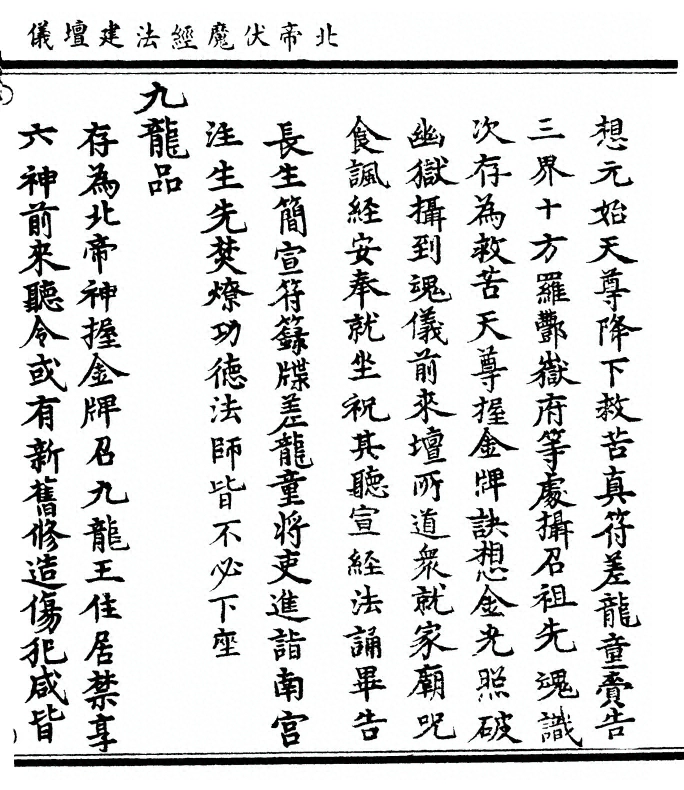 北帝伏魔經法建壇儀
想元始天尊降下救苦真符差龍童賫告
三界十方羅酆嶽府等處攝召祖先魂識
次存為救苦天尊握金牌訣想金光照破
幽獄攝到魂儀前來壇所道衆就家廟咒
食諷經安奉就坐祝其聽宣經法誦畢告
長生簡宣符籙牒差龍童將吏進詣南宮
注生先焚燎功德法師皆不必下座
九龍品
存為北帝神握金牌召九龍王住居禁享
六神前來聽令或有新舊修造傷犯咸皆